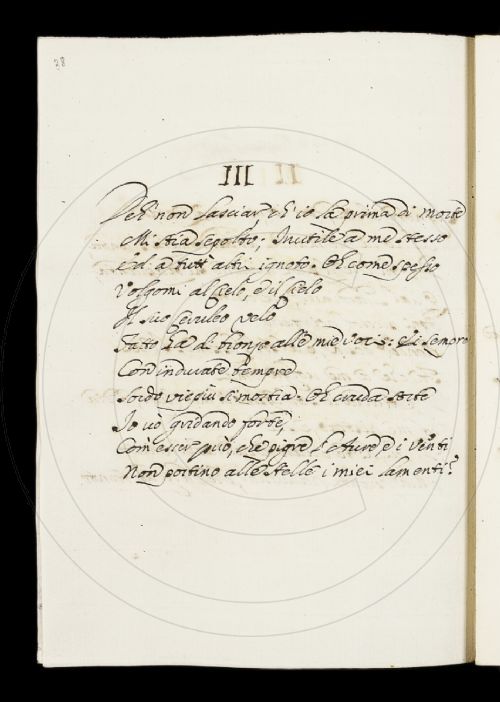 38
III
Deh non lasciar ch'io sia prima di morte
Mi stia sepolto; Inutile à me stesso
Ed à tutti altri ignoto. Oh come spesso
Volgomi al Ciel, e il Cielo
Il suo ceruleo velo
Fatto hà di bronzo alle mie voci: e si sempre
Con indurate tempre
Sordo vie più si mostra. Oh cruda sorte
Io vò gridando forte,
Com'esser può, che pigre l'Aure, e i Venti
Non portino alle stelle i miei lamenti?